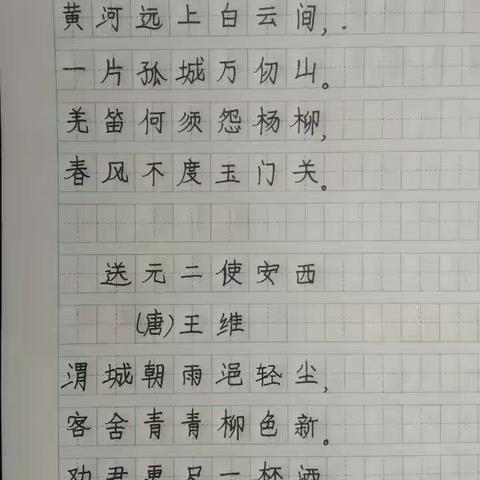 黄河远上白云间,.
一片孤城万仞山。
羌笛何须怨杨柳,
春风不度玉门关。
送元二使安西
(唐)王维
渭城朝雨浥轻尘,
客舍青青柳色新。
劝君更尽一杯酒